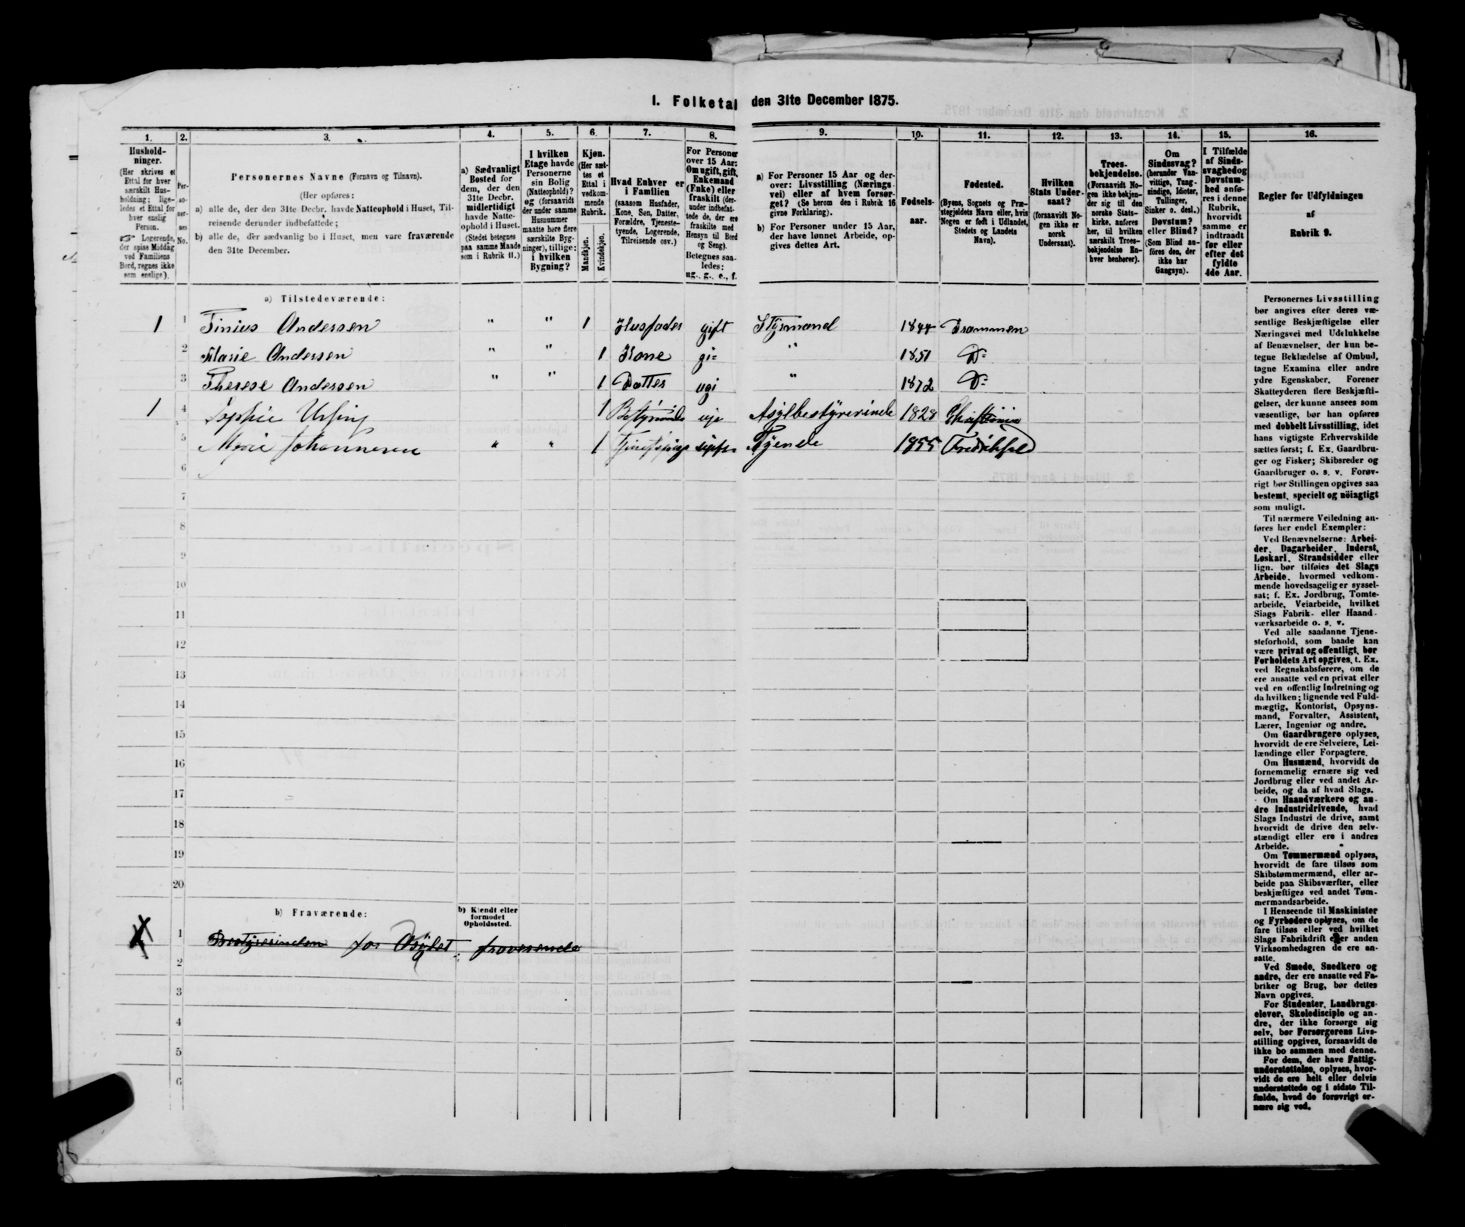 1. Folketal den 31te December 1875.
1. 2. 3. 4. 5. 6. 7. 8. 9. 10. 11. 12. 13. 14. 15. 16.
Hushold-
ninger.
(Her skrives et
Ettal for hver
særskilt Hus-
holdning; lige-
ledes et Ettal for
hver enslig
Person.
☞ Logerende,
der spise Middag
ved Familiens
Bord, regnes ikke
som enslige).
Per-
so-
ner-
nes
No.
Personernes Navne (Fornavn og Tilnavn).
(Her opføres:
a) alle de, der den 31te Decbr. havde Natteophold i Huset, Til-
reisende derunder indbefattede;
b) alle de, der sædvanlig bo i Huset, men vare fraværende
den 31te December.
a) Sædvanligt
Bosted for
dem, der den
31te Decbr.
midlertidigt
havde Natte-
ophold i Huset.
(Stedet betegnes
paa samme Maade
som i Rubrik 11.)
I hvilken
Etage havde
Personerne
sin Bolig
(Natteophold)?
og (forsaavidt
der under samme
Husnummer
maatte høre flere
særskilte Byg-
ninger), tillige:
i hvilken
Bygning?
Kjøn.
(Her sæt-
tes et
Ettal i
vedkom-
mende
Rubrik.
Mandkjøn.
Kvindekjøn.
Hvad Enhver er
i Familien
(saasom Husfader,
Kone, Søn, Datter,
Forældre, Tjeneste-
tyende, Logerende,
Tilreisende osv.)
For Personer
over 15 Aar:
Om ugift, gift,
Enkemand
(Enke) eller
fraskilt (der-
under indbefat-
tede de, der ere
fraskilte med
Hensyn til Bord
og Seng).
Betegnes saa-
ledes:
ug., g., e., f.
a) For Personer 15 Aar og der-
over: Livsstilling (Nærings-
vei) eller af hvem forsør-
get? (Se herom den i Rubrik 16
givne Forklaring).
b) For Personer under 15 Aar,
der have lønnet Arbeide, op-
gives dettes Art.
Fødsels-
aar.
Fødested.
(Byens, Sognets og Præ-
stegjeldets Navn eller, hvis
Nogen er født i Udlandet,
Stedets og Landets
Navn).
Hvilken
Stats Under-
saat?
(forsaavidt No-
gen ikke er
norsk
Undersaat).
Troes-
bekjendelse.
(Forsaavidt No-
gen ikke bekjen-
der sig til den
norske Stats-
kirke, anføres
her, til hvilken
særskilt Troes-
bekjendelse En-
hver henhører).
Om
Sindssvag?
(herunder Van-
vittige, Tung-
sindige, Idioter,
Sinker o. desl.)
Døvstum?
eller Blind?
(Som Blind an-
føres den, der
ikke har
Gangsyn).
I Tilfælde
af Sinds-
svaghed og
Døvstum-
hed anfø-
res i denne
Rubrik,
hvorvidt
samme er
indtraadt
før eller
efter det
fyldte
4de Aar.
Regler for Udfyldningen
af
Rubrik 9.
a) Tilstedeværende:
1 1 Tinius Andersen " " 1 Husfader gift Styrmand 1844 Drammen
2 Marie Andersen " " 1 Kone gi= " 1851 Do
3 Therese Andersen " " 1 Datter ugi " 1872 Do
1 4 Sophie 1 ugi Asylbestyrerinde 1828 Christiania
5 Marie Johannesen " " 1 Tyende 1855
6
7
8
9
10
11
12
13
14
15
16
17
18
19
20
b) Fraværende:
b) Kjendt eller
formodet
Opholdssted.
1 Bestyrerinden for Asylet fraværende
2
3
4
5
6
Personernes Livsstilling
bør angives efter deres væ-
sentlige Beskjæftigelse eller
Næringsvei med Udelukkelse
af Benævnelser, der kun be-
tegne Beklædelse af Ombud,
tagne Examina eller andre
ydre Egenskaber. Forener
Skatteyderen flere Beskjæfti-
gelser, der kunne ansees som
væsentlige, bør han opføres
med dobbelt Livsstilling, idet
hans vigtigste Erhvervskilde
sættes først; f. Ex. Gaardbru-
ger og Fisker; Skibsreder og
Gaardbruger o. s. v. Forøv-
rigt bør Stillingen opgives saa
bestemt, specielt og nöiagtigt
som muligt.
Til nærmere Veiledning an-
føres her endel Exempler:
Ved Benævnelserne: Arbei-
der, Dagarbeider, Inderst,
Løskarl, Strandsidder eller
lign. bør tilføies det Slags
Arbeide, hvormed vedkom-
mende hovedsagelig er syssel-
sat; f. Ex. Jordbrug, Tomte-
arbeide, Veiarbeide, hvilket
Slags Fabrik- eller Haand-
værksarbeide o. s. v.
Ved alle saadanne Tjene-
steforhold, som baade kan
være privat og offentligt, bør
Forholdets Art opgives, t. Ex.
ved Regnskabsførere, om de
ere ansatte ved en privat eller
ved en offentlig Indretning og
da hvilken; lignende ved Fuld-
mægtig, Kontorist, Opsyns-
mand, Forvalter, Assistent,
Lærer, Ingeniør og andre.
Om Gaardbrugere oplyses,
hvorvidt de ere Selveiere, Lei-
lændinge eller Forpagtere.
Om Husmænd, hvorvidt de
fornemmelig ernære sig ved
Jordbrug eller ved andet Ar-
beide, og da af hvad Slags.
Om Haandværkere og an-
dre Industridrivende, hvad
Slags Industri de drive, samt
hvorvidt de drive den selv-
stændigt eller ere i andres
Arbeide.
Om Tømmermænd oplyses,
hvorvidt de fare tilsøs som
Skibstømmermænd, eller ar-
beide paa Skibsværfter, eller
beskjæftiges ved andet Tøm-
mermandsarbeide.
I Henseende til Maskinister
og Fyrbødere oplyses, om de
fare tilsøs eller ved hvilket
Slags Fabrikdrift eller anden
Virksomhedsgren de ere an-
satte.
Ved Smede, Snedkere og
andre, der ere ansatte ved Fa-
briker og Brug, bør dettes
Navn opgives.
For Studenter, Landbrugs-
elever, Skoledisciple og an-
dre, der ikke forsørge sig
selv, bør Forsørgerens Livs-
stilling opgives, forsaavidt de
ikke bo sammen med denne.
For dem, der have Fattig-
understøttelse, oplyses, hvor-
vidt de ere helt eller delvis
understøttede og i sidste Til-
fælde, hvad de forøvrigt er-
nære sig ved.